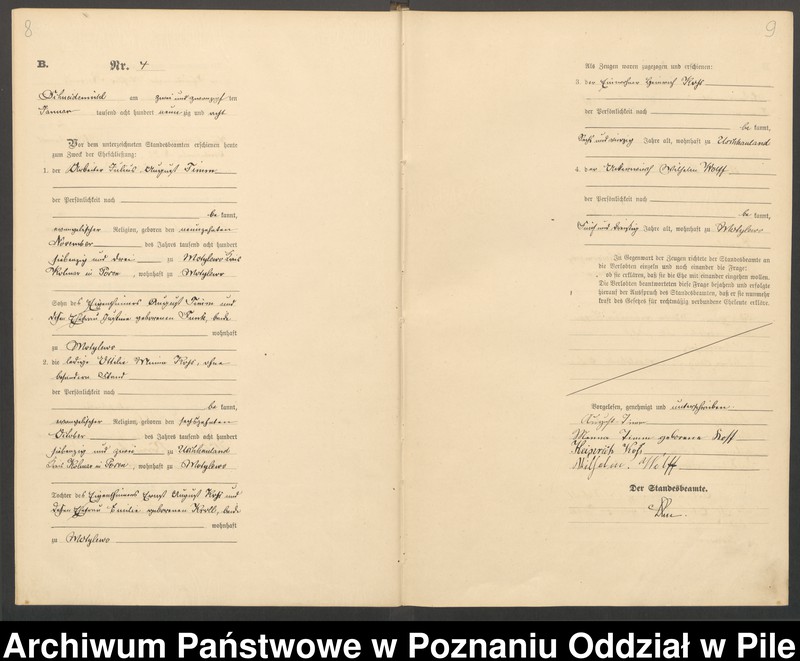 8
B. Nr. 4
Schneidemühl am zwei und zwanzigsten
Januar tausend acht hundert neunzig und acht
Vor dem unterzeichneten Standesbeamten erschienen heute
zum Zweck der Eheschließung:
1. der Arbeiter Julius August Timm
der Persönlichkeit nach
be kannt,
evangelischer Religion, geboren den neunzehnten
November des Jahres tausend acht hundert
siebenzig und drei zu Motylewo Kreis
Kolmar in Posen, wohnhaft zu Motylewo
Sohn des Eigenthümers August Timm und
dessen Ehefrau geborenen beide
wohnhaft
zu Motylewo
2. die ledige Ottilie Minna Koß, ohne
besondern Stand
der Persönlichkeit nach
be kannt,
evangelischer Religion, geboren den sechszehnten
Oktober des Jahres tausend acht hundert
siebenzig und zwei zu Uschhauland
Kreis Kolmar in Posen, wohnhaft zu Motylewo
Tochter des Eigenthümers Ernst August Koß und
dessen Ehefrau Emilie geborenen Kroll, beide
wohnhaft
zu Motylewo
9
Als Zeugen waren zugezogen und erschienen:
3. der Einwohner Heinrich Koß
der Persönlichkeit nach
be kannt,
Sechs und vierzig Jahre alt, wohnhaft zu Uschhauland
4. der Ackerwirth Wilhelm Wolff
der Persönlichkeit nach
be kannt,
Fünf und dreißig Jahre alt, wohnhaft zu Motylewo
In Gegenwart der Zeugen richtete der Standesbeamte an
die Verlobten einzeln und nach einander die Frage:
ob sie erklären, daß sie die Ehe mit einander eingehen wollen.
Die Verlobten beantworteten diese Frage bejahend und erfolgte
hierauf der Ausspruch des Standesbeamten, daß er sie nunmehr
kraft des Gesetzes für rechtmäßig verbundene Eheleute erkläre.
Vorgelesen, genehmigt und unterschrieben
August Timm
Minna Timm geborene Koß
Heinrich Koß
Wilhelm Wolff
Der Standesbeamte.
Archiwum Państwowe w Poznaniu Oddział w Pile